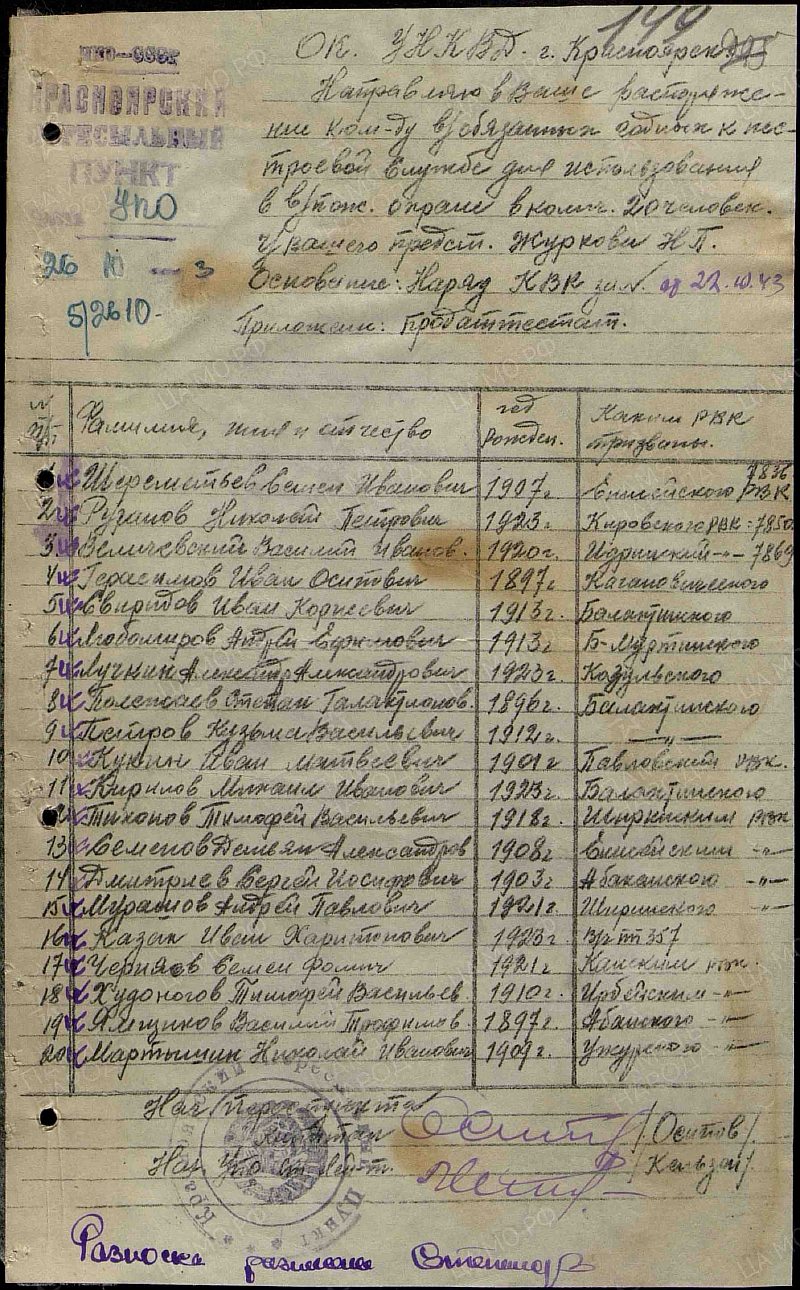 149
НКО—СССР
КРАСНОЯРСКИЙ
ПЕРЕСЫЛЬНЫЙ
ПУНКТ
УПО
26 10 3
5/2610
ОК. УНКВД. г. Красноярск
Направляю в Ваше распоряже-
ние ком-ду в/обязанных годных к нес-
троевой службе для использования
в в/пож. охране в колич. 20 человек.
У вашего предст. Журкова Н.П.
Основание: Наряд КВК за № от 22.10.43
Приложен: продаттестат.
№ п/п Фамилия, имя и отчество год рожден. Каким РВК призваны.
1 Шереметьев Семен Иванович 1907г. Енисейского РВК 7836
2 Рузанов Николай Петрович 1923г. Кировского РВК - 7850
3 Величевский Василий Иванов. 1920г. Идринский —"— 7869
4 Герасимов Иван Осипович 1897г. Кагановического
5 Свиридов Иван Корнеевич 1913г. Балахтинского
6 Любомиров Андрей 1913г. Б-Муртинского
7 Лучкин Александр Александрович 1923г. Козульского
8 Полежаев Степан Галактионов. 1896г. Балахтинского
9 Петров Кузьма Васильевич 1912г. —"—
10 Кукин Иван Матвеевич 1901г Павловский РВК.
11 Кирилов Михаил Иванович 1923г. Балахтинского
12 Тихонов Тимофей Васильевич 1918г. РВК
13 Семенов Демьян Александров 1908г Енисейским —"—
14 Дмитриев Сергей Иосифович 1903г. Абаканского —"—
15 Мурашов Андрей Павлович 1921г. Ширинского —"—
16 Казак Иван Харитонович 1923г. в/г пп 357
17 Черняов Семен Фомич 1921г Канским РВК.
18 Худоногов Тимофей Васильев. 1910г. Ирбейским —"—
19 Ямщиков Василий Трофимов. 1897г. Абанского —"—
20 Мартышин Николай Иванович 1909г. Ужурского —"—
Нач Переспункта
Капитан /Осипов/
Нач УПО ст. лей-т.
Разноска